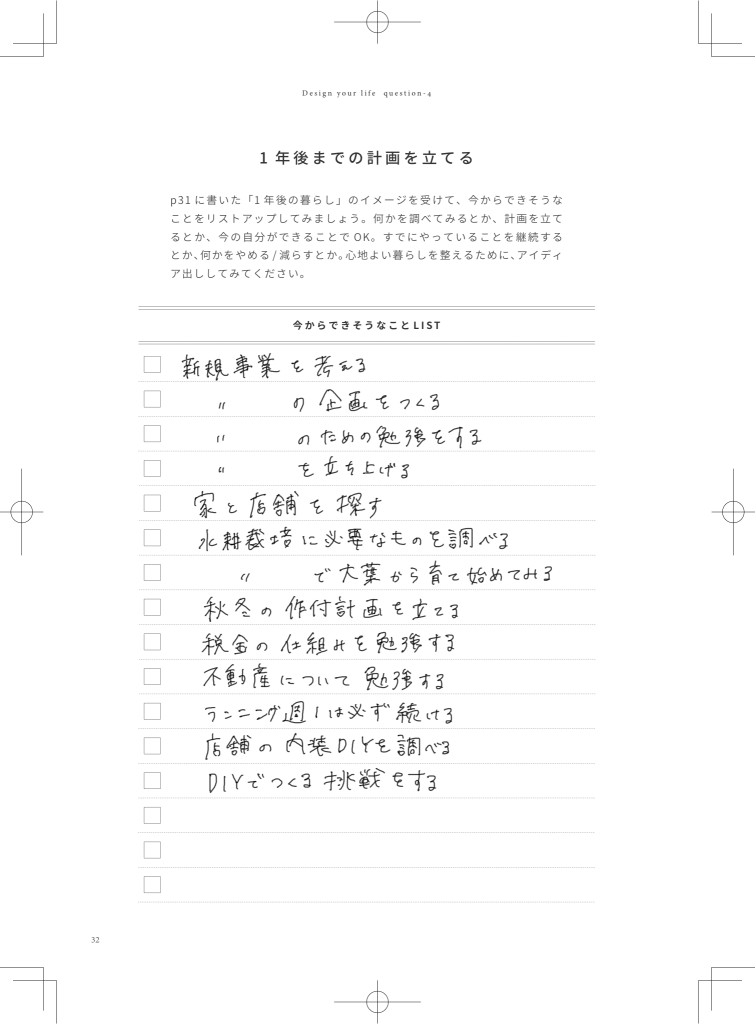 Design your life question-4
1年後までの計画を立てる
p31に書いた「1年後の暮らし」のイメージを受けて、今からできそうな
ことをリストアップしてみましょう。何かを調べてみるとか、計画を立て
るとか、今の自分ができることでOK。すでにやっていることを継続する
とか、何かをやめる/減らすとか。心地よい暮らしを整えるために、アイディ
ア出ししてみてください。
今からできそうなことLIST
新規事業を考える
〃 の企画をつくる
〃 のための勉強をする
〃 を立ち上げる
家と店舗を探す
水耕栽培に必要なものを調べる
〃 で大葉から育て始めてみる
秋冬の作付計画を立てる
税金の仕組みを勉強する
不動産について勉強する
ランニング週1は必ず続ける
店舗の内装DIYを調べる
DIYでつくる挑戦をする
32